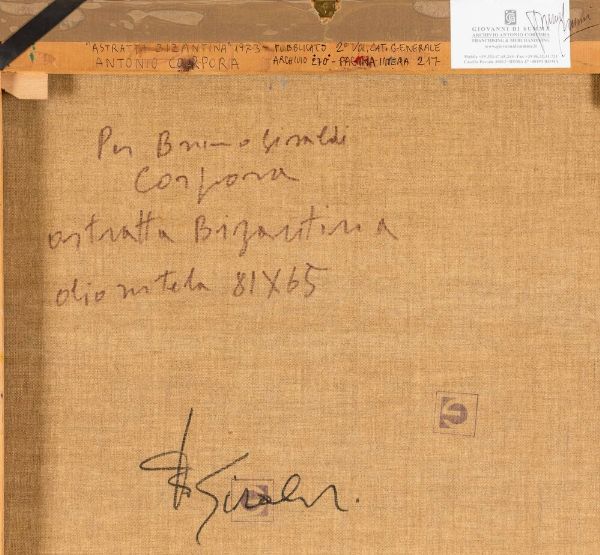 "ASTRATTA BIZANTINA" 1973 - PUBBLICATO 2° VOL. CAT. GENERALE
ANTONIO CORPORA ARCHIVIO 270 - PAGINA INTERA 217
GIOVANNI DI SUMMA
ARCHIVIO ANTONIO CORPORA
Per Bruno Giraldi
Corpora
astratta Bizantina
olio su tela 81X65
B. Giraldi.